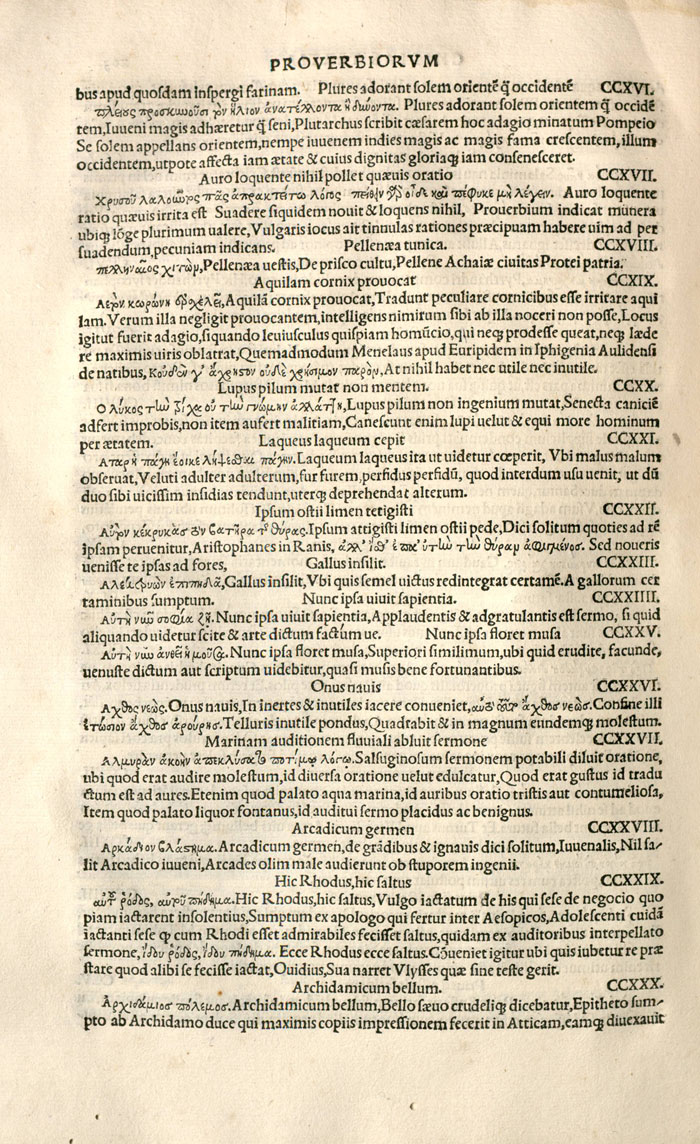 PROVERBIORVM
bus apud quosdam inspergi farinam. Plures adorant solem orientē q̄ occidentē CCXVI.
πλείους προσκωοῦσι τὸν ἥλιον ἀνατέλλοντα ἢ δύνοντα. Plures adorant solem orientem q̄ occidē
tem, Iuueni magis adhæretur q̄ seni, Plutarchus scribit cæsarem hoc adagio minatum Pompeio
Se solem appellans orientem, nempe iuuenem indies magis ac magis fama crescentem, illum
occidentem, utpote affecta iam ætate & cuius dignitas gloriaq; iam consenesceret.
Auro loquente nihil pollet quæuis oratio CCXVII.
Χρυσοῦ λαλοῦντος πᾶς ἀπρακτείτω λόγος πείθειν γὸ οἶδε καὶ πέφυκε μὴ λέγειν. Auro loquente
ratio quæuis irrita est Suadere siquidem nouit & loquens nihil, Prouerbium indicat munera
ubiq; lōge plurimum ualere, Vulgaris iocus ait tinnulas rationes præcipuam habere uim ad per
suadendum, pecuniam indicans. Pellenæa tunica. CCXVIII.
πελληναῖος χιτών, Pellenæa uestis, De prisco cultu, Pellene Achaiæ ciuitas Protei patria.
Aquilam cornix prouocat CCXIX.
Ἀετὸν κορώνη ἐρεχελεῖ, Aquilā cornix prouocat, Tradunt peculiare cornicibus esse irritare aqui
lam. Verum illa negligit prouocantem, intelligens nimirum sibi ab illa noceri non posse, Locus
igitut fuerit adagio, siquando leuiusculus quispiam homūcio, qui neq; prodesse queat, neq; læde
re maximis uiris oblatrat, Quemadmodum Menelaus apud Euripidem in Iphigenia Aulidensi
de natibus, Κοὐδέν γ' ἄχρηστον οὐδὲ χρήσιμον παρόν, At nihil habet nec utile nec inutile.
Lupus pilum mutat non mentem. CCXX.
Ὁ λύκος τὼ τρίχα οὐ τὼ γνώμην ἀλλάττει, Lupus pilum non ingenium mutat, Senecta caniciē
adfert improbis, non item aufert malitiam, Canescunt enim lupi uelut & equi more hominum
per ætatem. Laqueus laqueum cepit CCXXI.
Ἁπαρὴ πάγη ἔοικε λήψεσθαι πάγην. Laqueum laqueus ita ut uidetur cœperit, Vbi malus malum
obseruat, Veluti adulter adulterum, fur furem, perfidus perfidū, quod interdum usu uenit, ut dū
duo sibi uicissim insidias tendunt, uterq; deprehendat alterum.
Ipsum ostii limen tetigisti CCXXII.
Αὐτὸν κέκρυκας τὸν βατῆρα τ͂ θύρας. Ipsum attigisti limen ostii pede, Dici solitum quoties ad rē
ipsam peruenitur, Aristophanes in Ranis, ἀλλ' ἴσθ' ἐπ' αὐτὼ τὼ θύραν ἀφιγμένος. Sed noueris
uenisse te ipsas ad fores, Gallus insilit. CCXXIII.
Ἀλεκτρυὼν ἐπιπηδᾷ, Gallus insilit, Vbi quis semel uictus redintegrat certamē. A gallorum cer
taminibus sumptum. Nunc ipsa uiuit sapientia. CCXXIIII.
Αὐτὴ νῶ σοφία ζῇ. Nunc ipsa uiuit sapientia, Applaudentis & adgratulantis est sermo, si quid
aliquando uidetur scite & arte dictum factum ue. Nunc ipsa floret musa CCXXV.
Αὐτὴ νῶ ἀνθεῖ ἡ μοῦσα. Nunc ipsa floret musa, Superiori similimum, ubi quid erudite, facunde,
uenuste dictum aut scriptum uidebitur, quasi musis bene fortunantibus.
Onus nauis CCXXVI.
Ἄχθος νεώς. Onus nauis, In inertes & inutiles iacere conueniet, ἄχθος νεώς. Confine illi
ἐτώσιον ἄχθος ἀρούρης. Telluris inutile pondus, Quadrabit & in magnum eundemq; molestum.
Marinam auditionem fluuiali abluit sermone CCXXVII.
Ἁλμυρὰν ἀκοὴν ἀπεκλύσατο ποτίμῳ λόγῳ. Salsuginosum sermonem potabili diluit oratione,
ubi quod erat audire molestum, id diuersa oratione uelut edulcatur, Quod erat gustus id tradu
ctum est ad aures. Etenim quod palato aqua marina, id auribus oratio tristis aut contumeliosa,
Item quod palato liquor fontanus, id auditui sermo placidus ac benignus.
Arcadicum germen CCXXVIII.
Ἀρκάδιον βλάστημα. Arcadicum germen, de grādibus & ignauis dici solitum, Iuuenalis, Nil sa-
lit Arcadico iuueni, Arcades olim male audierunt ob stuporem ingenii.
Hic Rhodus, hic saltus CCXXIX.
αὐτοῦ ῥόδος, αὐτοῦ πήδημα. Hic Rhodus, hic saltus, Vulgo iactatum de his qui sese de negocio quo
piam iactarent insolentius, Sumptum ex apologo qui fertur inter Aesopicos, Adolescenti cuidā
iactanti sese q̨ cum Rhodi esset admirabiles fecisset saltus, quidam ex auditoribus interpellato
sermone, ἰδοὺ ῥόδος, ἰδοὺ πήδημα. Ecce Rhodus ecce saltus. Cōueniet igitur ubi quis iubetur re præ
stare quod alibi se fecisse iactat, Ouidius, Sua narret Vlysses quæ sine teste gerit.
Archidamicum bellum. CCXXX.
Ἀρχιδάμιος πόλεμος. Archidamicum bellum, Bello sæuo crudeliq; dicebatur, Epitheto sum-
pto ab Archidamo duce qui maximis copiis impressionem fecerit in Atticam, eamq; diuexauit